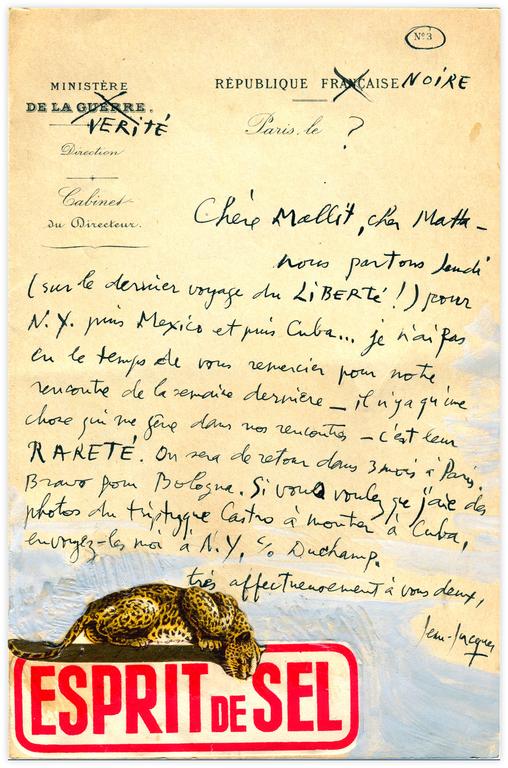 N°3
MINISTÈRE
DE LA GUERRE.
VERITÉ
RÉPUBLIQUE FRANÇAISE NOIRE
Paris, le ?
Direction
Cabinet
du Directeur.
Chère Mallit, cher Matta -
nous partons lundi
(sur le dernier voyage du LIBERTÉ!) pour
N.Y. puis Mexico et puis Cuba... je n'ai pas
eu le temps de vous remercier pour notre
rencontre de la semaine dernière - il n'y a qu'une
chose qui me gêne dans nos rencontres - c'est leur
RARETÉ. On sera de retour dans 3 mois à Paris.
Bravo pour Bologna. Si vous voulez que j'aie des
photos du triptyque Castro à montrer à Cuba,
envoyez-les moi à N.Y. c/o Duchamp.
très affectueusement à vous deux,
Jean-Jacques
ESPRIT DE SEL